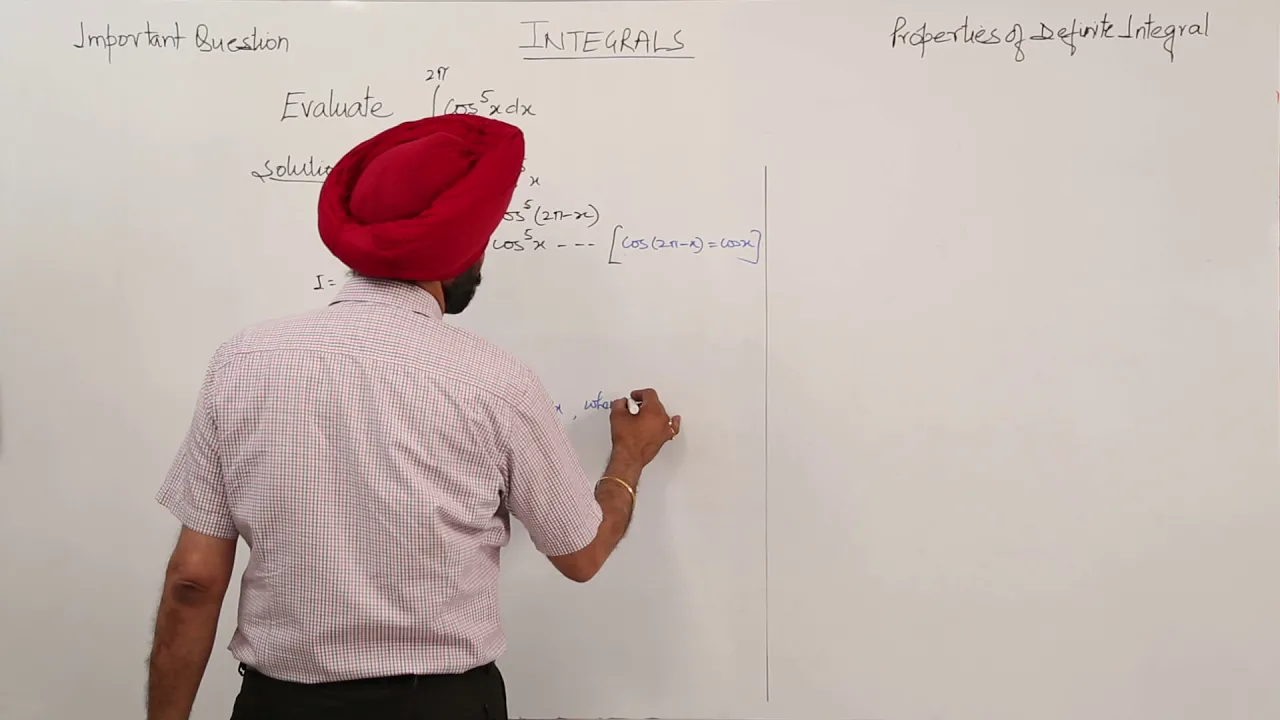 Important Question
INTEGRALS
Properties of Definite Integral
2π
Evaluate ∫cos⁵x dx
x
cos⁵(2π-x)
cos⁵x --- [cos(2π-x)=cosx]
I=
x ,